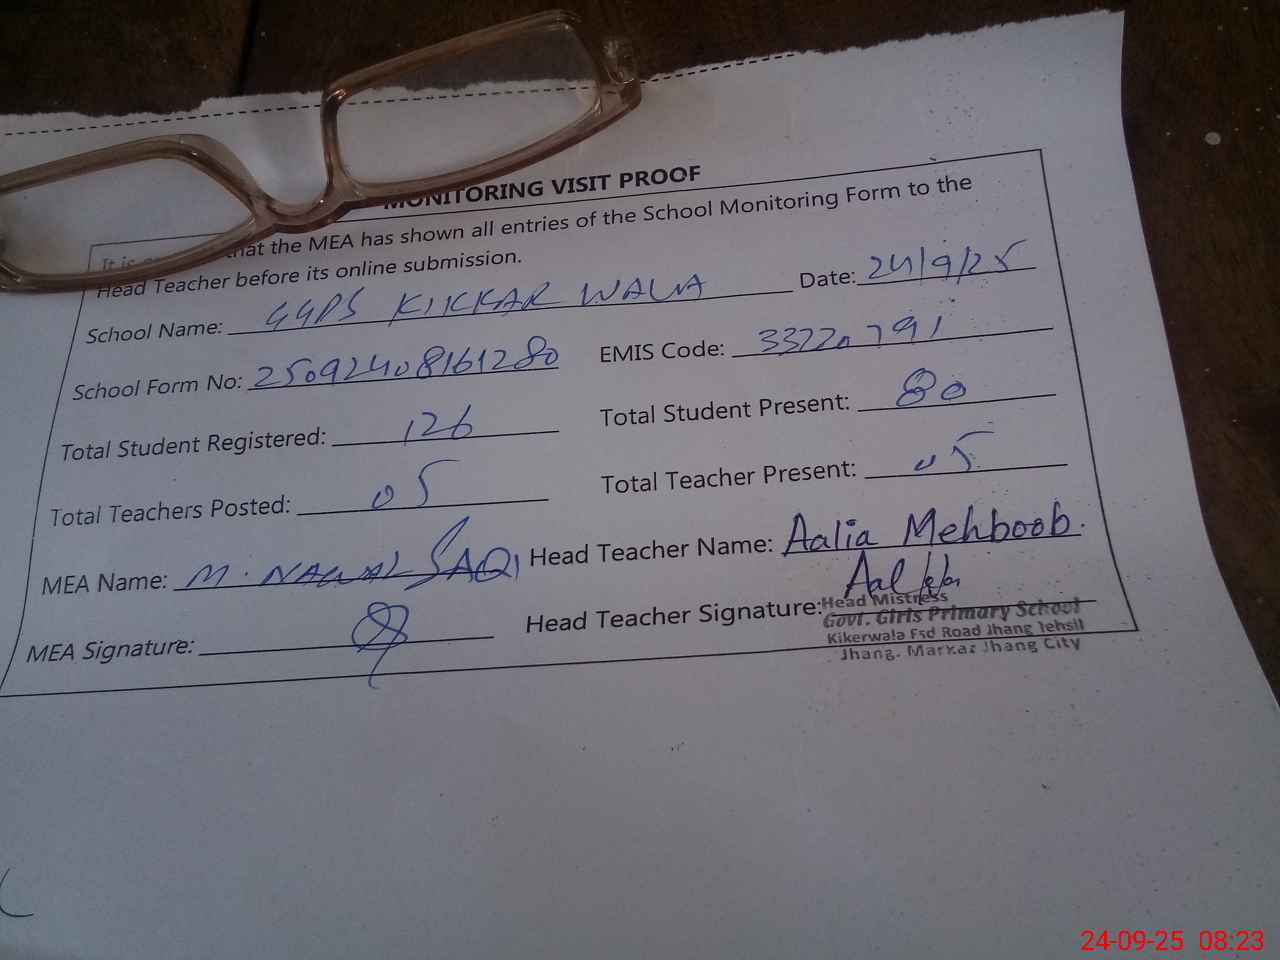 MONITORING VISIT PROOF
It is that the MEA has shown all entries of the School Monitoring Form to the
Head Teacher before its online submission.
School Name: GGPS KIKKAR WALA Date: 24/9/25
School Form No: 25092408161280 EMIS Code: 33220791
Total Student Registered: 126 Total Student Present: 80
Total Teachers Posted: 05 Total Teacher Present: 05
MEA Name: M. NAWAL SAQI Head Teacher Name: Aalia Mehboob.
MEA Signature: Head Teacher Signature:
Head Mistress
Govt. Girls Primary School
Kikerwala Fsd Road Jhang Tehsil
Jhang. Markaz Jhang City
24-09-25 08:23